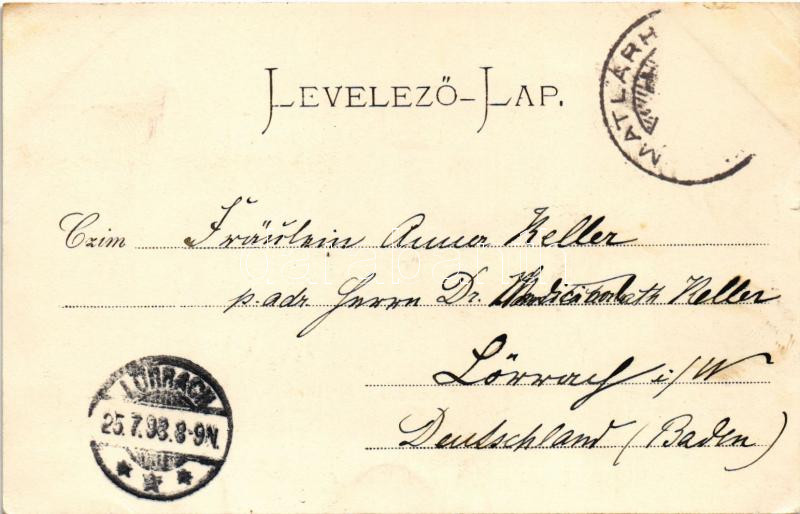 LEVELEZŐ-LAP.
MATLÁRH
Czim Fräulein Anna Keller
p. adr. Herrn Dr. Medicinalrath Keller
Lörrach i/W
Deutschland (Baden)
LÖRRACH
25.7.98.8-9N.